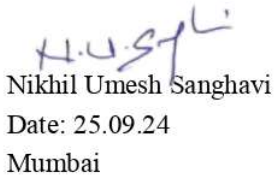 Nikhil Umesh Sanghavi
Date: 25.09.24
Mumbai